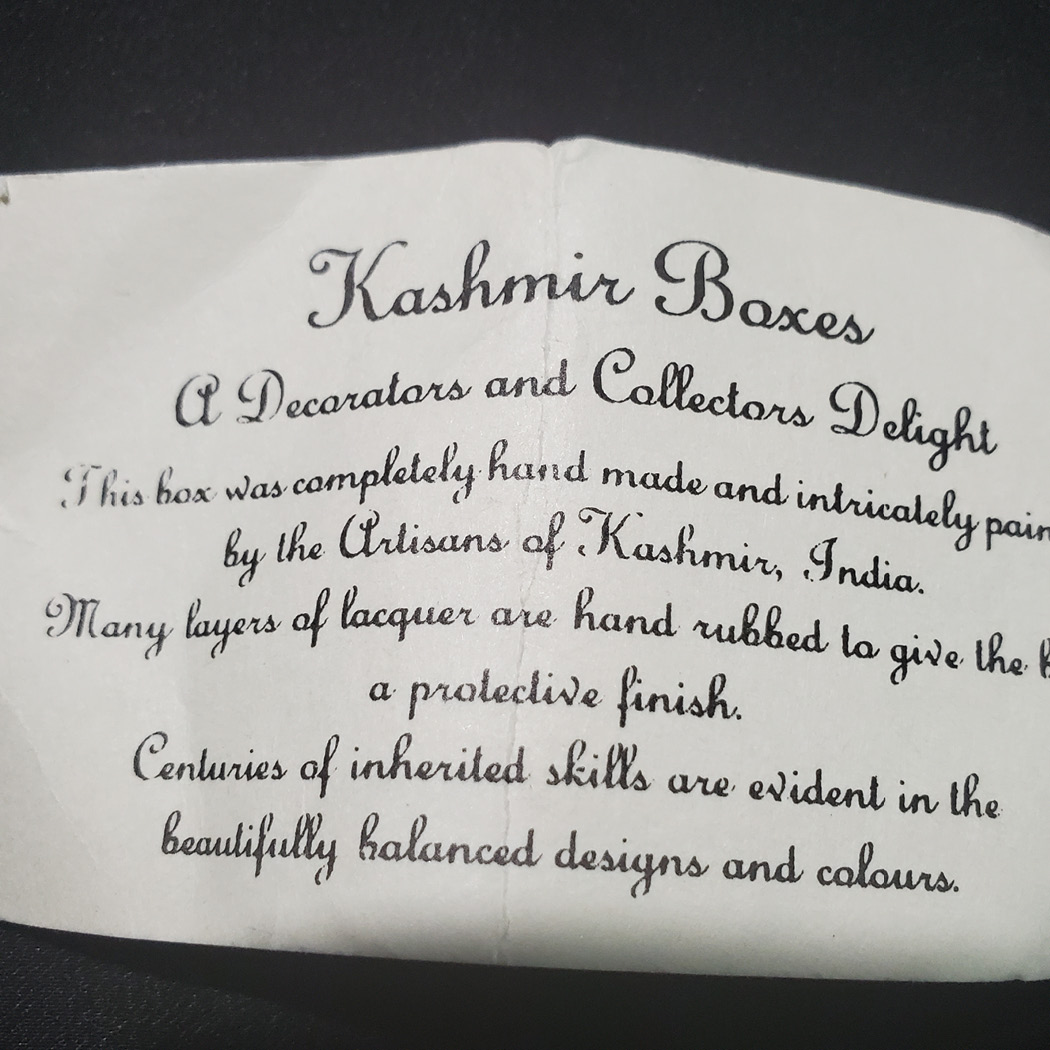 Kashmir Boxes
A Decorators and Collectors Delight
This box was completely hand made and intricately pain
by the Artisans of Kashmir, India.
Many layers of lacquer are hand rubbed to give the
a protective finish.
Centuries of inherited skills are evident in the
beautifully balanced designs and colours.